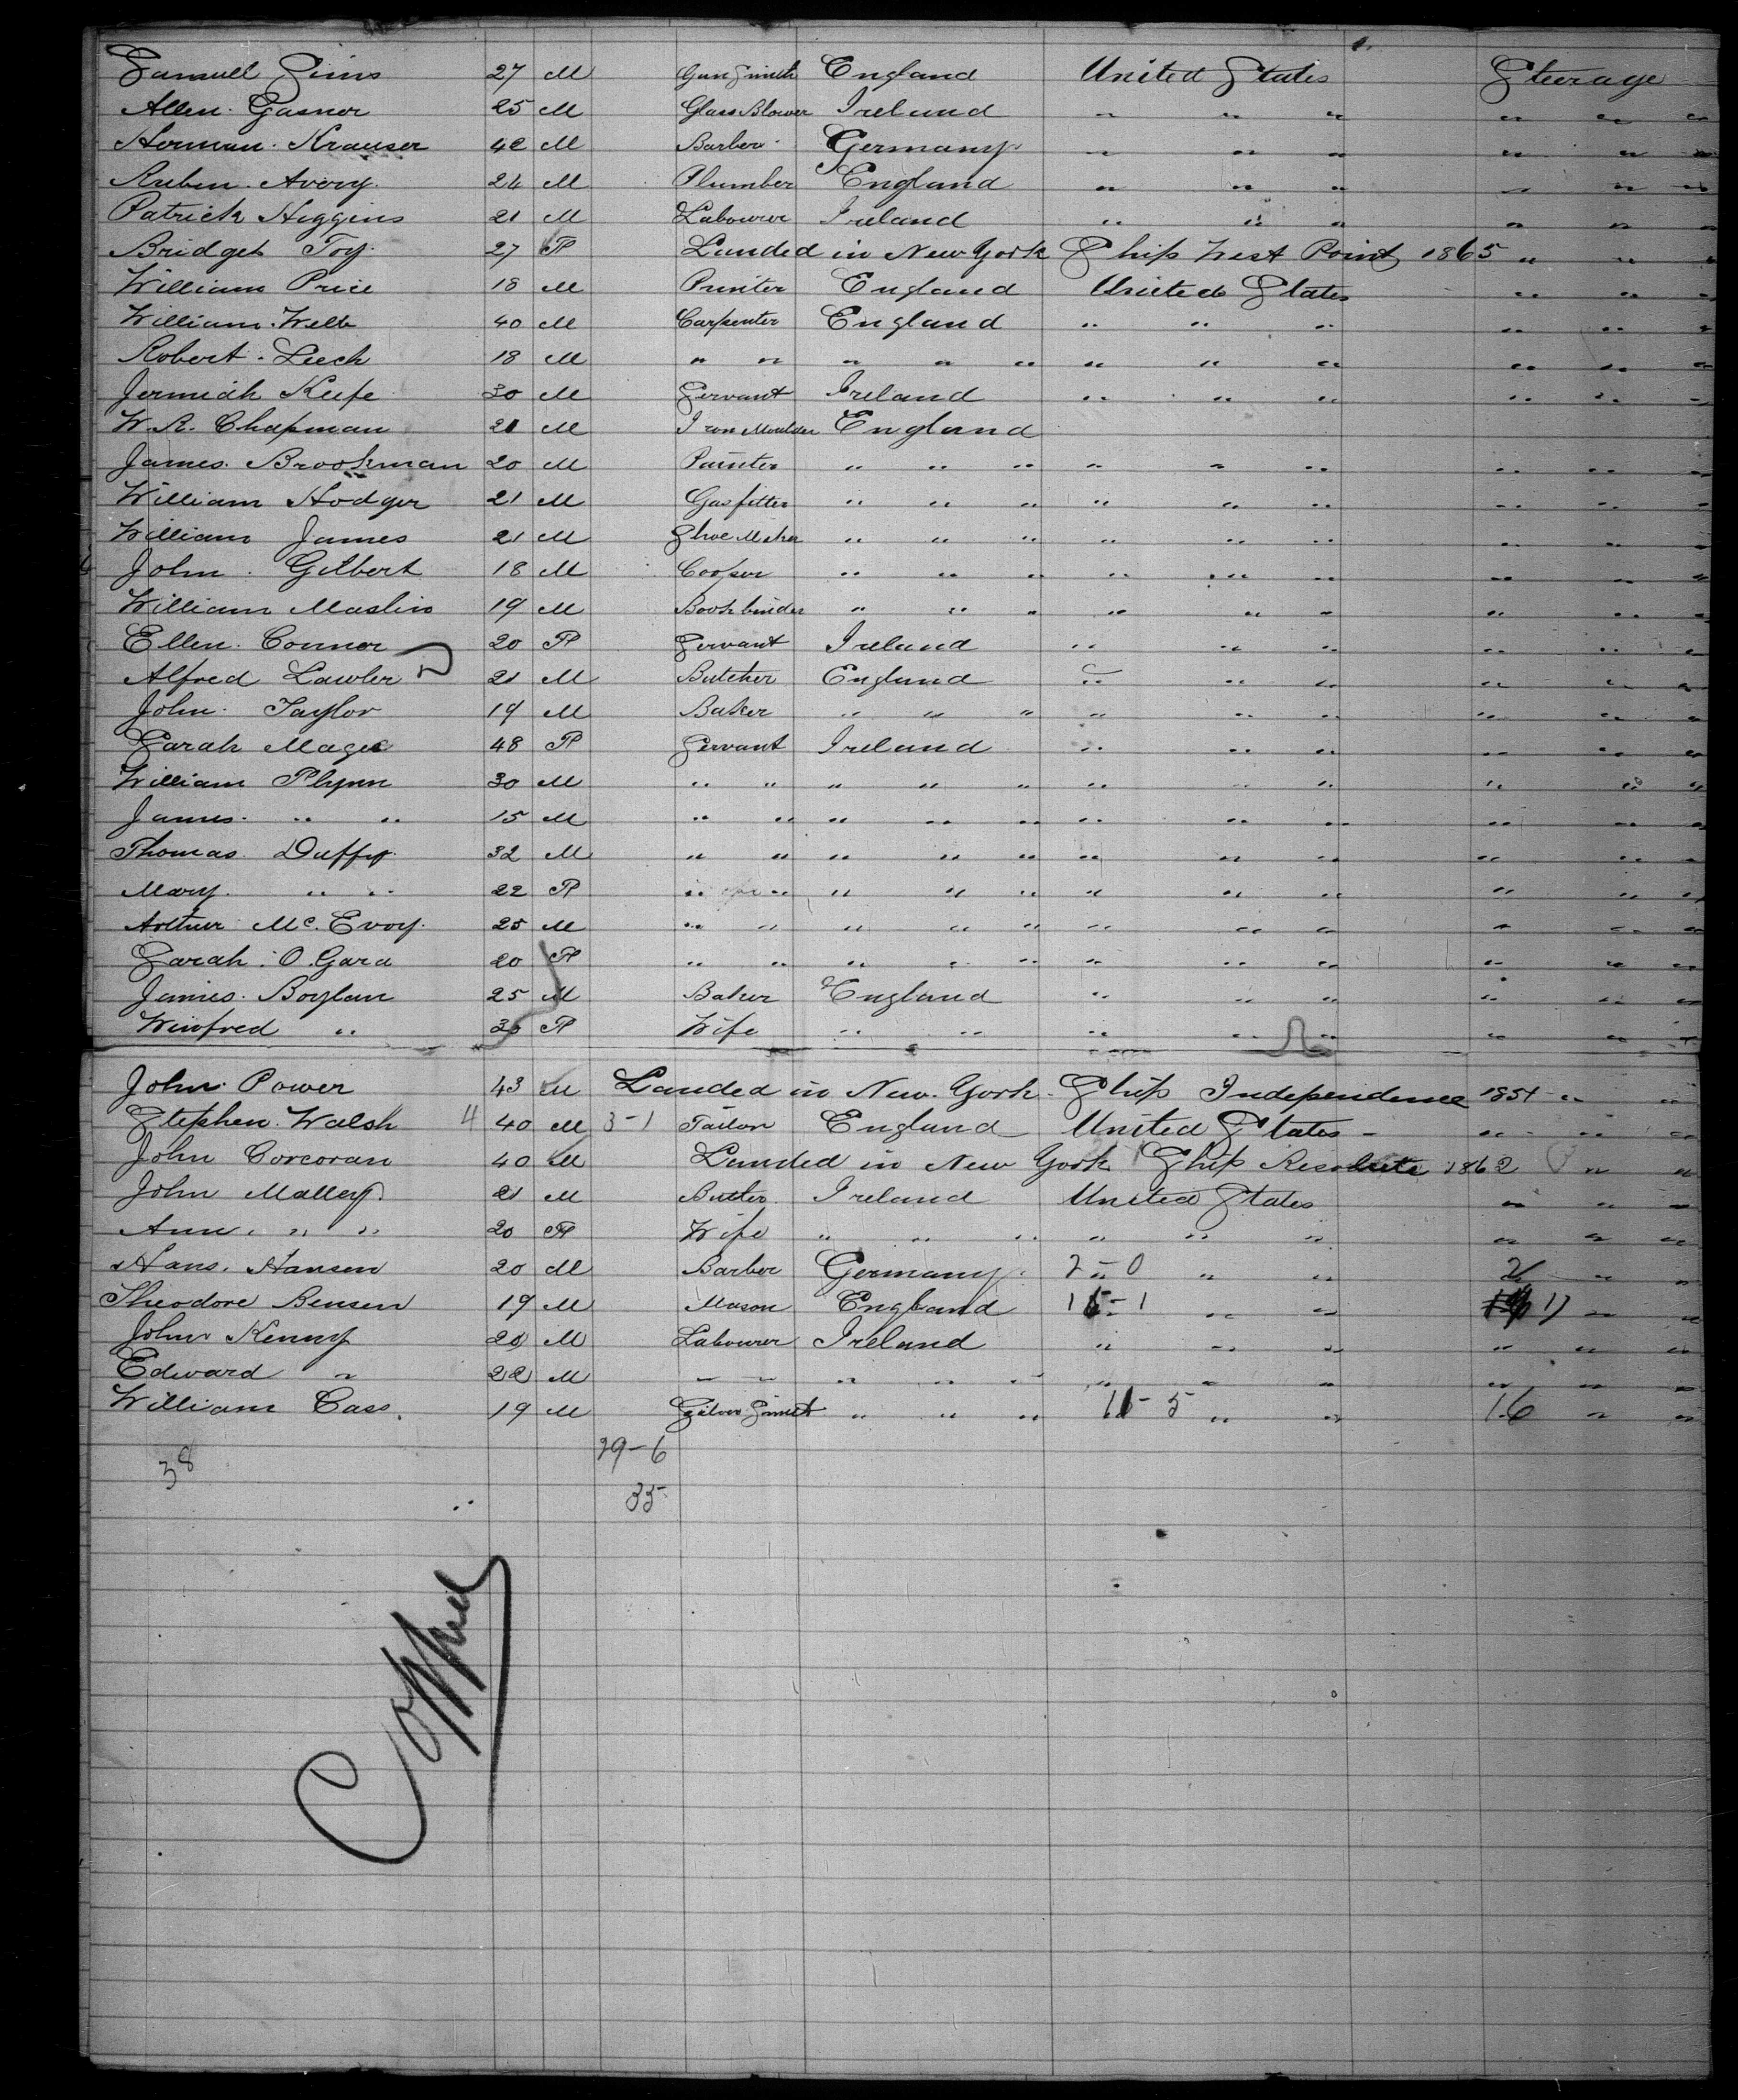 Samuell Sims 27 M Gun Smith England United States Steerage
Allen Gasnor 25 M Glass Blower Ireland " " " " " "
Herman Krauser 42 M Barber Germany " " " " " "
Ruben Avory 24 M Plumber England " " " " " "
Patrick Higgins 21 M Labourer Ireland " " " " " "
Bridget Foy 27 F Landed in New York Ship West Point 1865 " " "
William Price 18 M Printer England United States " " "
William Webb 40 M Carpenter England " " " " " "
Robert Leech 18 M " " " " " " " " " " "
Jermiah Keefe 30 M Servant Ireland " " " " " "
W. R. Chapman 21 M Iron Moulder England
James Brookman 20 M Painter " " " " " " " " "
William Hodger 21 M Gasfitter " " " " " " " " "
William James 21 M Shoe Maker " " " " " " " " "
John Gilbert 18 M Cooper " " " " " " " " "
William Maslin 19 M Bookbinder " " " " " " " " "
Ellen Connor 20 F Servant Ireland " " " " " "
Alfred Lawler 21 M Butcher England " " " " " "
John Taylor 19 M Baker " " " " " " " " "
Sarah Magee 48 F Servant Ireland " " " " " "
William Flynn 30 M " " " " " " " " " " "
James " " 15 M " " " " " " " " " " "
Thomas Duffy 32 M " " " " " " " " " " "
Mary " " 22 F " " " " " " " " " " "
Arthur Mc. Evoy 25 M " " " " " " " " " " "
Sarah O. Gara 20 F " " " " " " " " " " "
James Boylan 25 M Baker England " " " " " "
Winfred " 30 F Wife " " " " " " " "
John Power 43 M Landed in New York Ship Independence 1851 " "
Stephen Walsh 4 40 M 3-1 Tailor England United States " " "
John Corcoran 40 M Landed in New York Ship Resolute 1862 " "
John Mallery 21 M Butler Ireland United States " " "
Ann " " " 20 F Wife " " " " " " " " "
Hans Hansen 20 M Barber Germany 2-0 " " 2 " "
Theodore Bensen 19 M Mason England 16-1 " " 17 " "
John Kenny 20 M Labourer Ireland " " " " " "
Edward " 22 M " " " " " " " " " " "
William Cass 19 M Silver Smith " " " 11-5 " " 16 " "
29-6
38
35
Copied